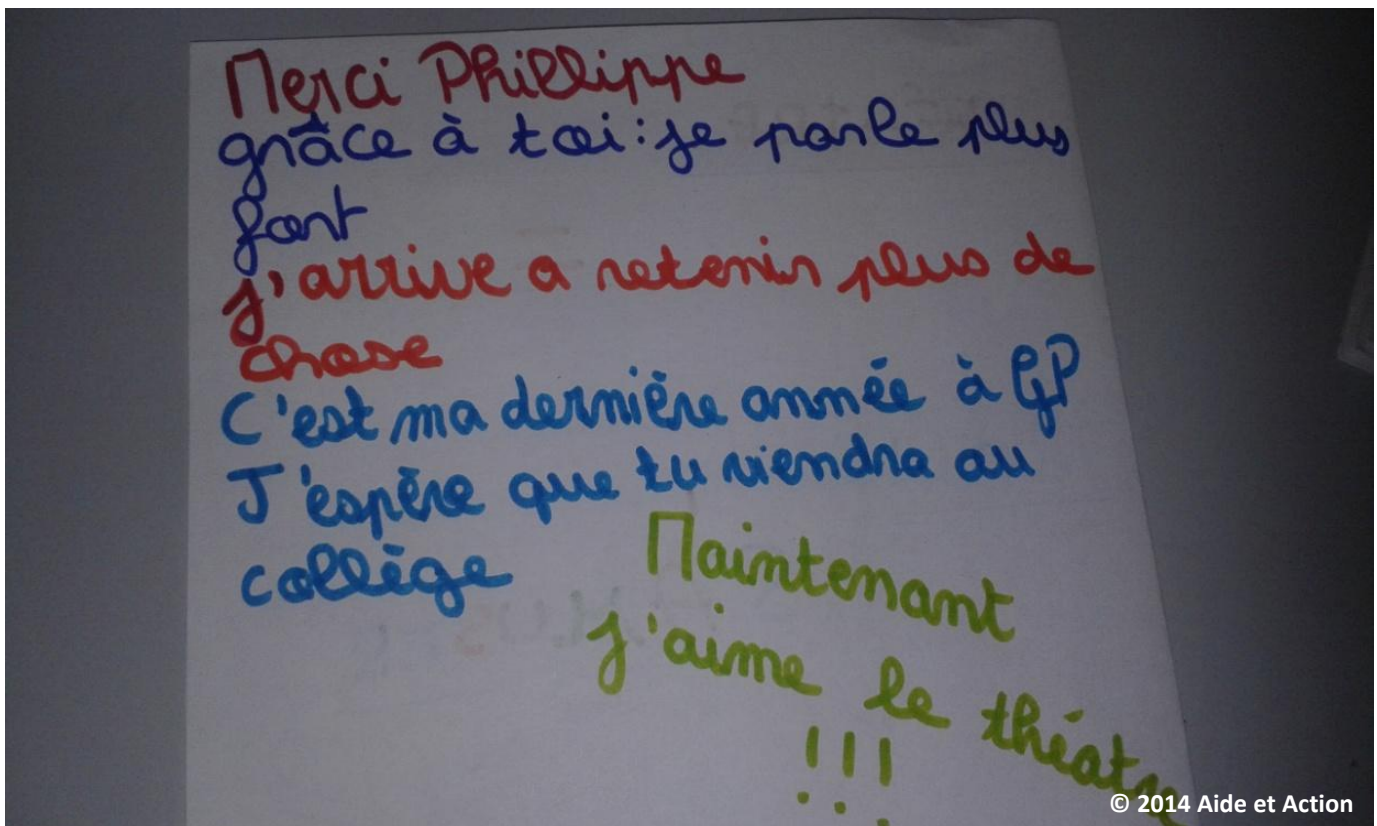 Merci Phillippe
grâce à toi: je parle plus
fort
j'arrive a retenir plus de
chose
C'est ma dernière année à GP
J'espère que tu viendra au
collège
Maintenant
j'aime le théatre
!!!
© 2014 Aide et Action